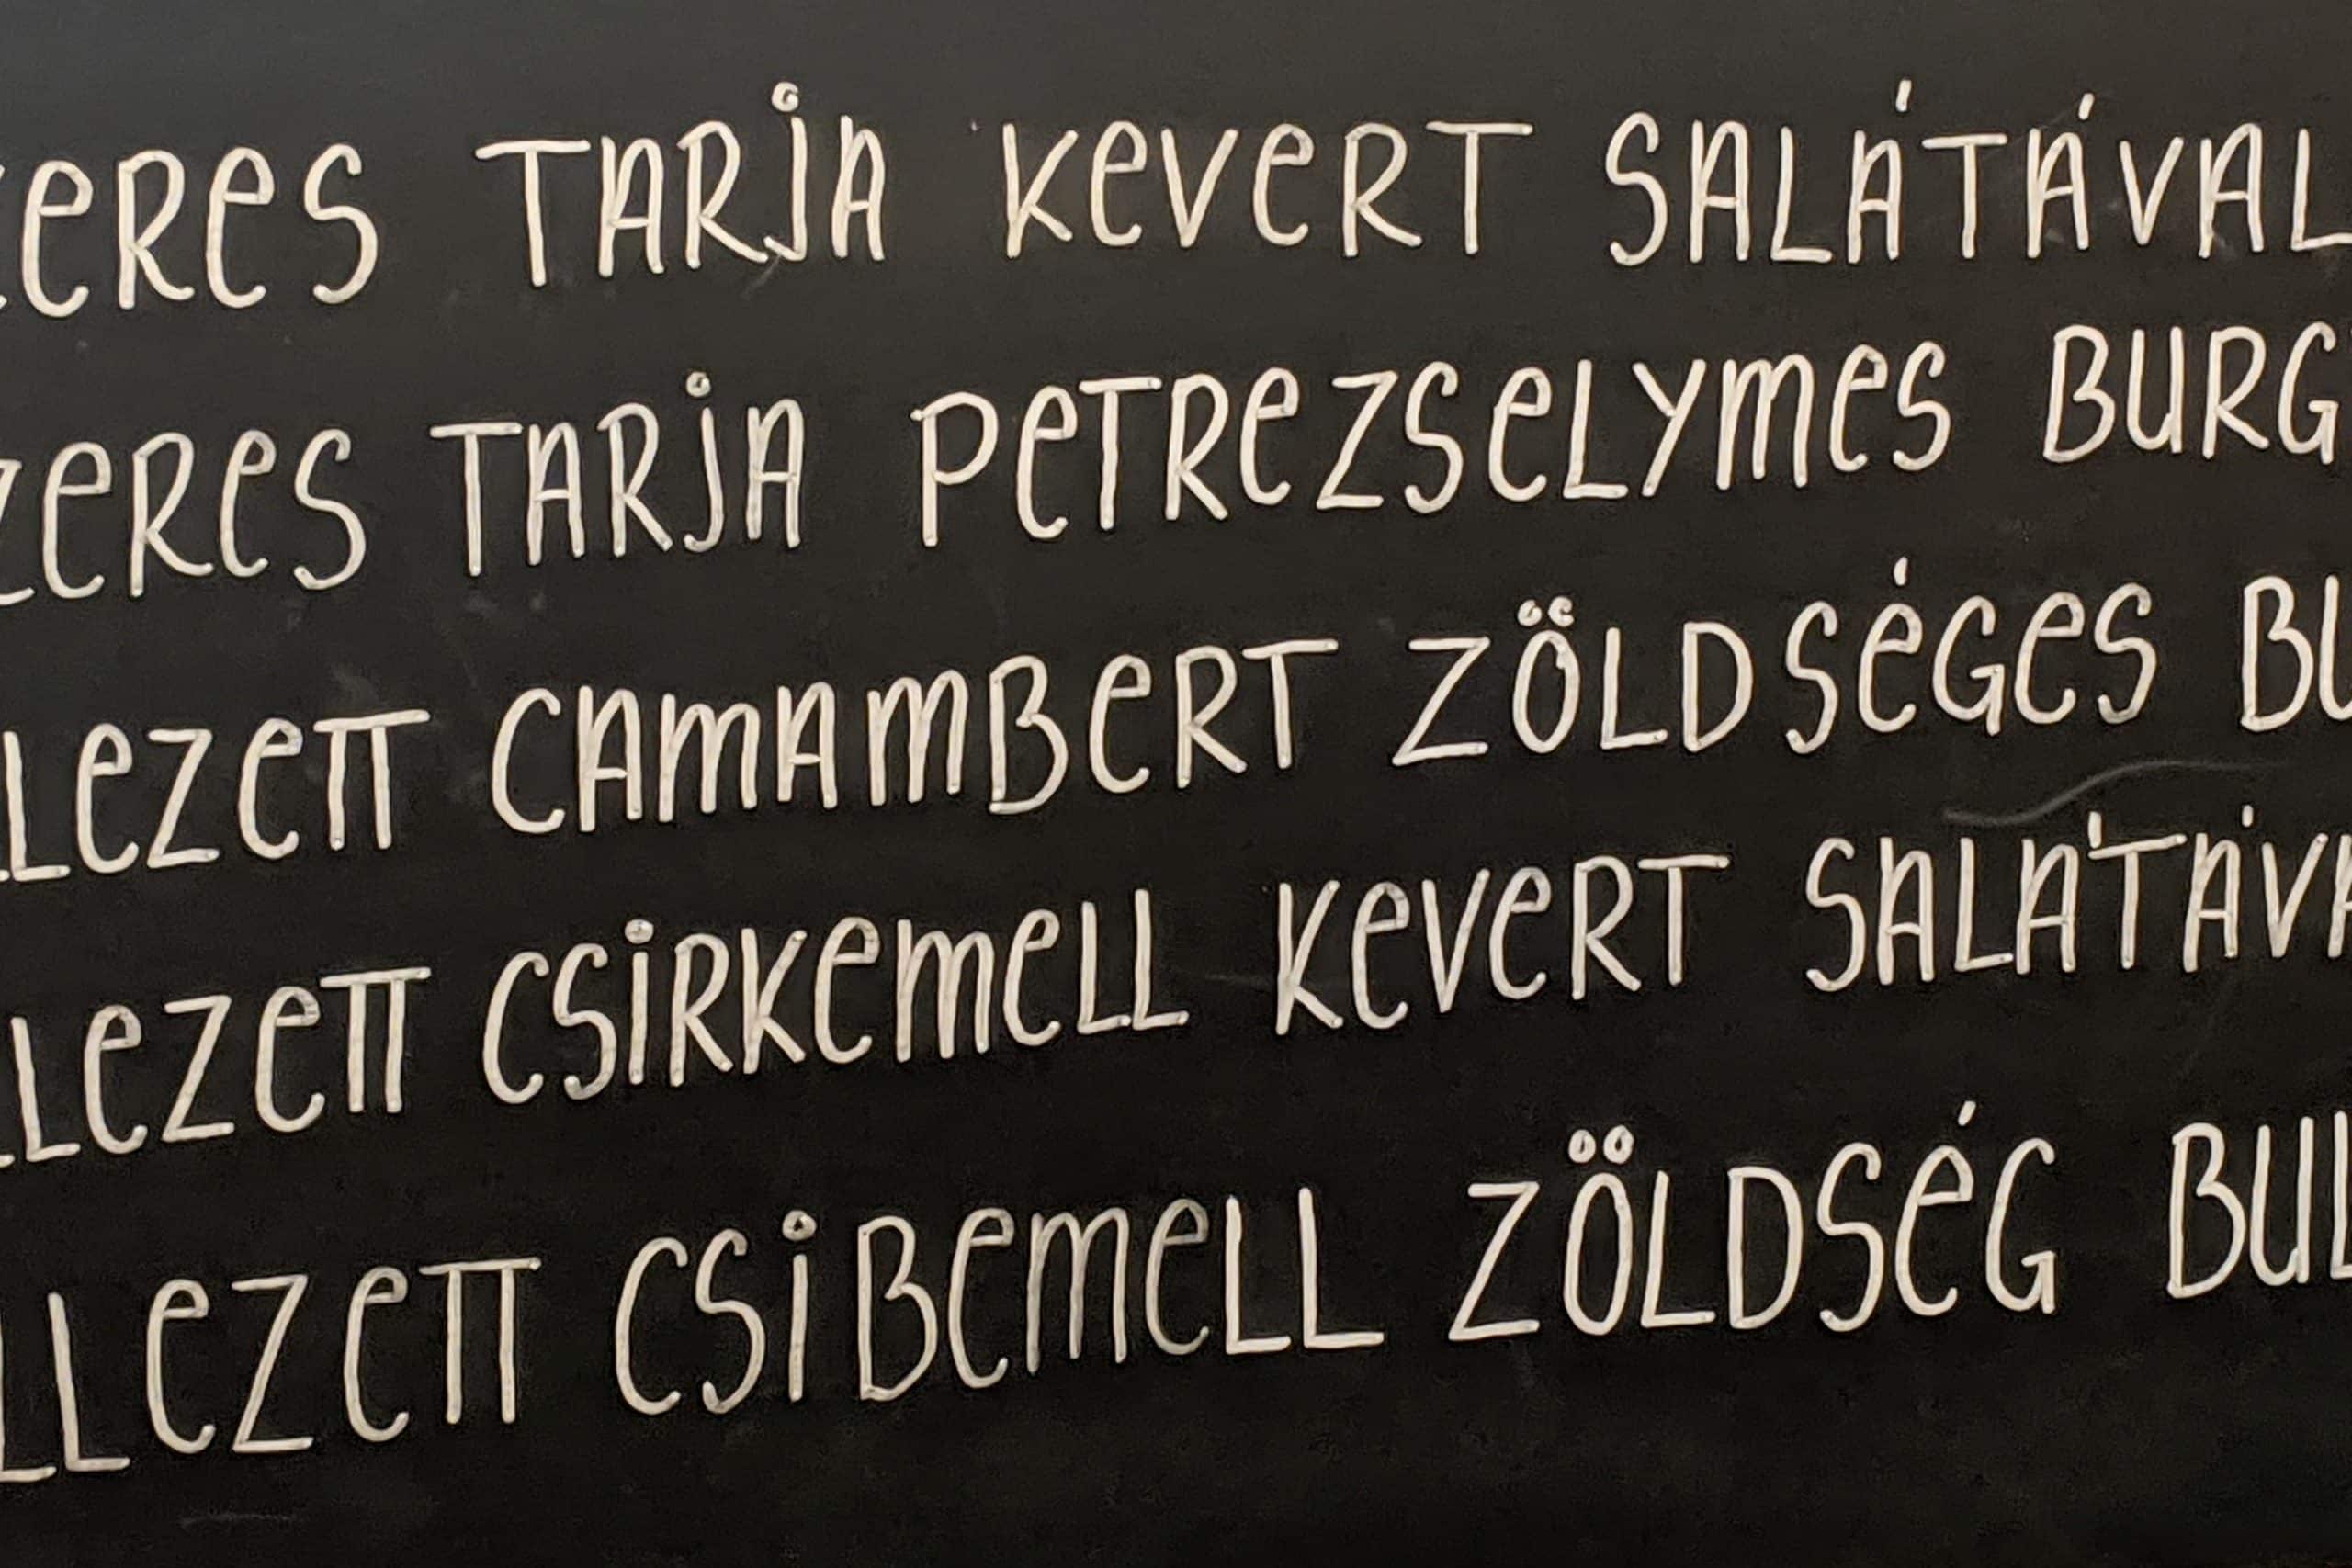 ZERES TARJA KEVERT SALÁTÁVAL
ZERES TARJA PETREZSELYMES BURG
LLEZETT CAMAMBERT ZÖLDSÉGES BU
LLEZETT CSIRKEMELL KEVERT SALÁTÁVA
LLEZETT CSIBEMELL ZÖLDSÉG BUL